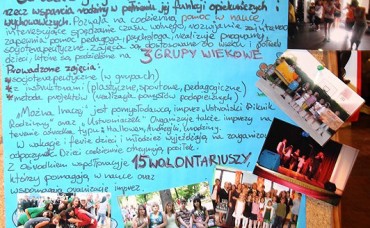 rzecz wsparcia rodziny w pełnieniu jej funkcji opiekuńczych i
wychowawczych. Pozwala na codzienną pomoc w nauce,
interesujące spędzanie czasu wolnego, rozwijanie zainteresowań
zapewnia pomoc pedagoga i psychologa, realizuje programy
socjoterapeutyczne. Zajęcia są dostosowane do wieku i potrzeb
dzieci, które są podzielone na 3 GRUPY WIEKOWE
Prowadzone zajęcia:
socjoterapeutyczne (w grupach)
z instruktorami (plastyczne, sportowe, pedagogiczne)
metodą projektów (realizacja pomysłów podopiecznych)
„Można inaczej" jest pomysłodawcą imprez „Ustroński Piknik
Rodzinny" oraz „Ustrowiaczek". Organizuje także imprezy na
terenie ośrodka, typu: Halloween, Andrzejki, Urodziny.
W wakacje i ferie dzieci i młodzież wyjeżdżają na
odpoczynek. Dzieci codziennie otrzymują posiłek.
Z Ośrodkiem współpracuje 15 WOLONTARIUSZY,
którzy pomagają w nauce oraz
wspomagają organizację imprez.